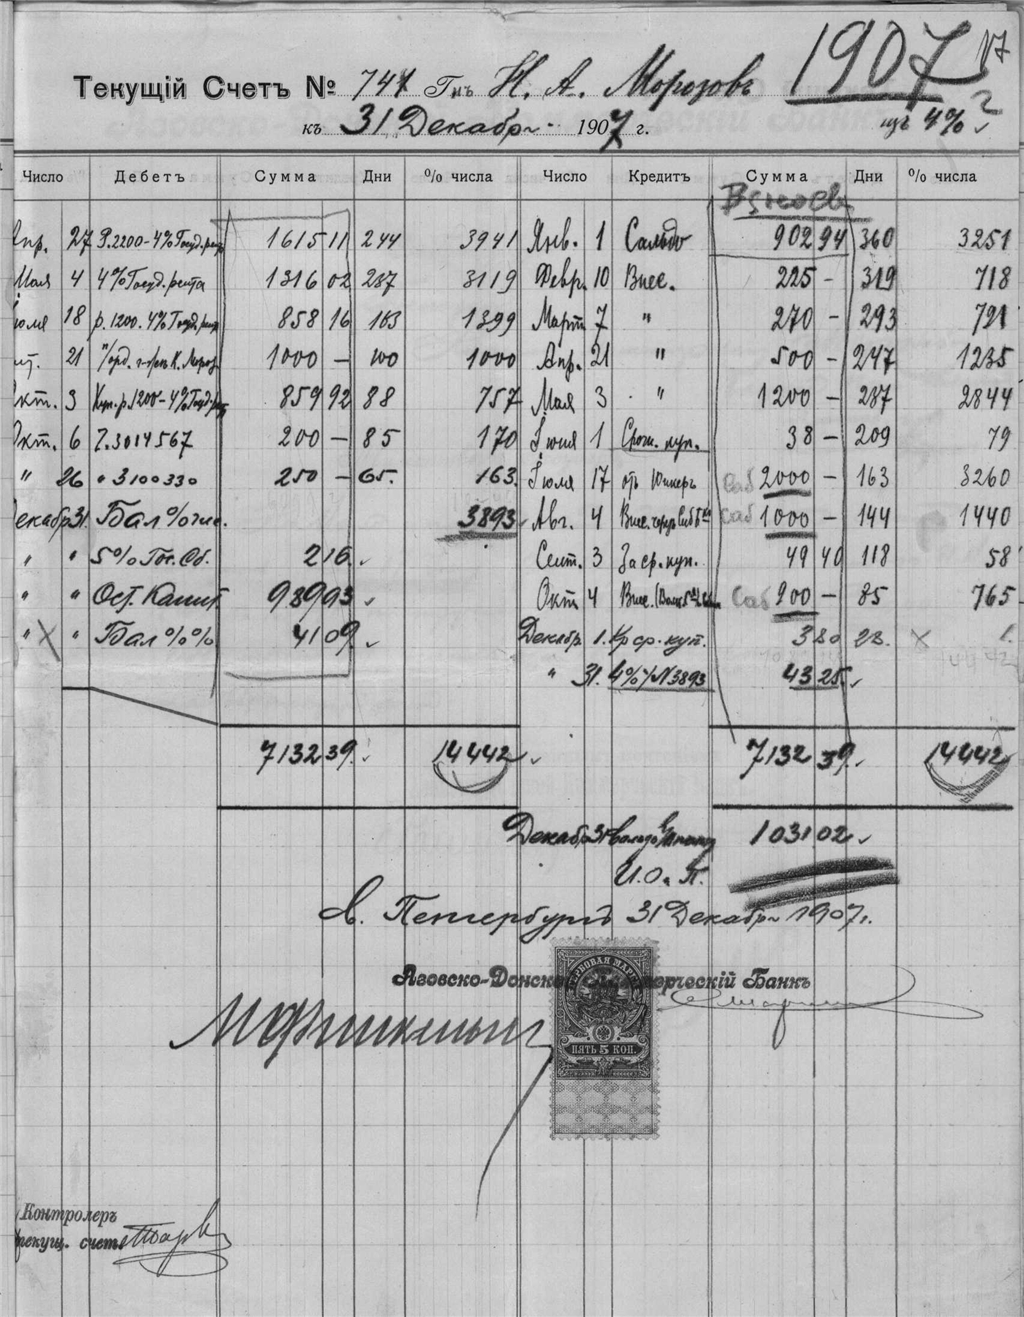 1907 №7
Текущій Счетъ № 747 Гнъ Н. А. Морозовъ
къ 31 Декабр 1907 г. изъ 4% ?
Число Дебетъ Сумма Дни % числа Число Кредитъ Сумма Дни % числа
Взносы
Апр. 27 Р. 2200-4% Госуд. рен 1615 11 244 3941 Янв. 1 Сальдо 902 94 360 3251
Мая 4 4% Госуд. рента 1316 02 237 3119 Февр. 10 Внес. 225 - 319 718
юля 18 р. 1200-4% Госуд. рен 858 16 163 1399 Март 7 " 270 - 293 791
21 1000 - 100 1000 Апр. 21 " 500 - 247 1235
Окт. 3 р. 1200-4% Госуд. 859 92 88 757 Мая 3 " 1200 - 237 2844
Окт. 6 Ч. 3014567 200 - 85 170 Іюня 1 Сроч. куп. 38 - 209 79
" 26 " 3100330 250 - 65. 163. Іюля 17 отъ Юнкеръ Саб 2000 - 163 3260
Декабр 31. Бал % чис. 3893 Авг. 4 Внес. через Сиб Бкъ Саб 1000 - 144 1440
" " 5% Гос. Сб. 2 16 Сент. 3 За ср. куп. 49 40 118 58
" " Ост. Капит 989 93 Окт 4 Внес. Саб 900 - 85 765
" " Бал % % 41 09 Декабр. 1. Кр ср. куп. 3 80 28 1
" 31. 4% / N 3893 43 25
7132 39 14442 7132 39 14442
Декабр 31 Сальдо 1031 02
И. О. П.
С. Петербургъ 31 Декабр 1907 г.
Азовско-Донской Коммерческій Банкъ
ГЕРБОВАЯ МАРКА
ПЯТЬ 5 КОП.
Контролеръ
текущ. счет.